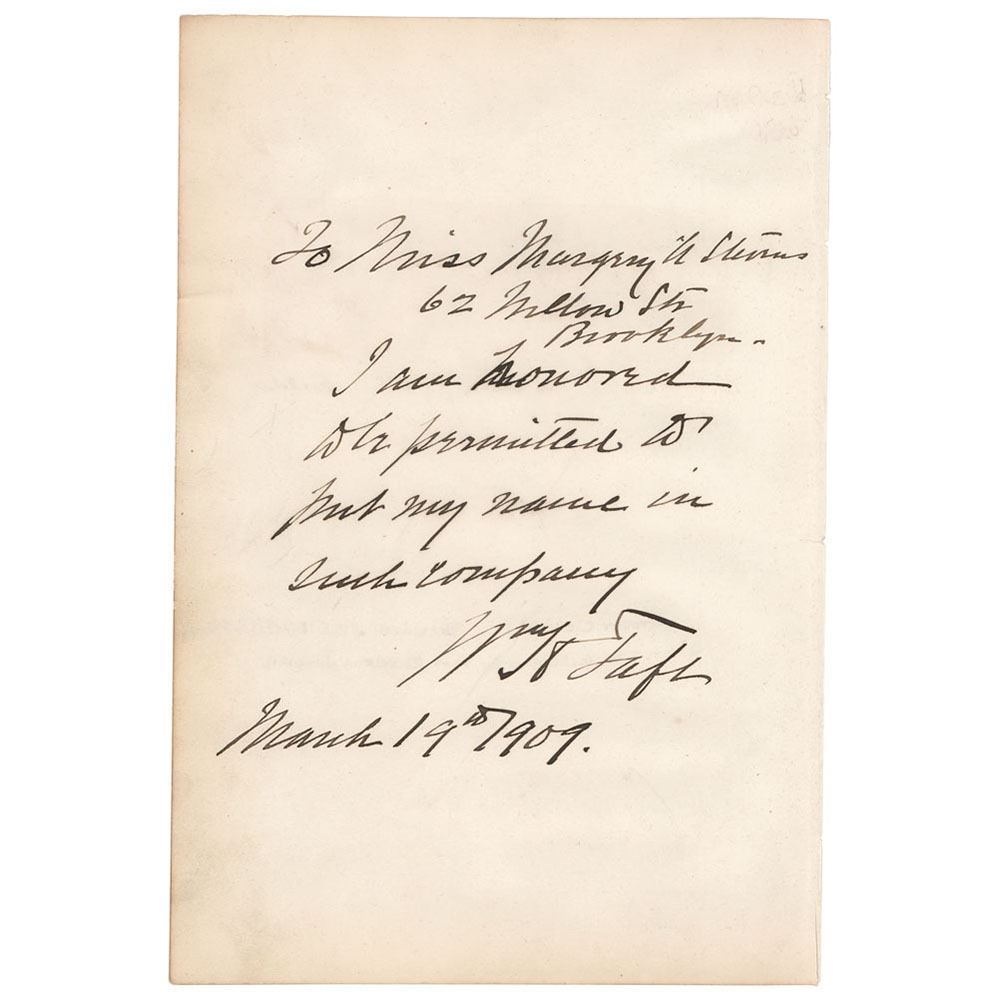 To Miss Margery A Stevens
62 Willow Str
Brooklyn.
I am honored
to be permitted to
put my name in
such company
Wm H Taft
March 19th 1909.